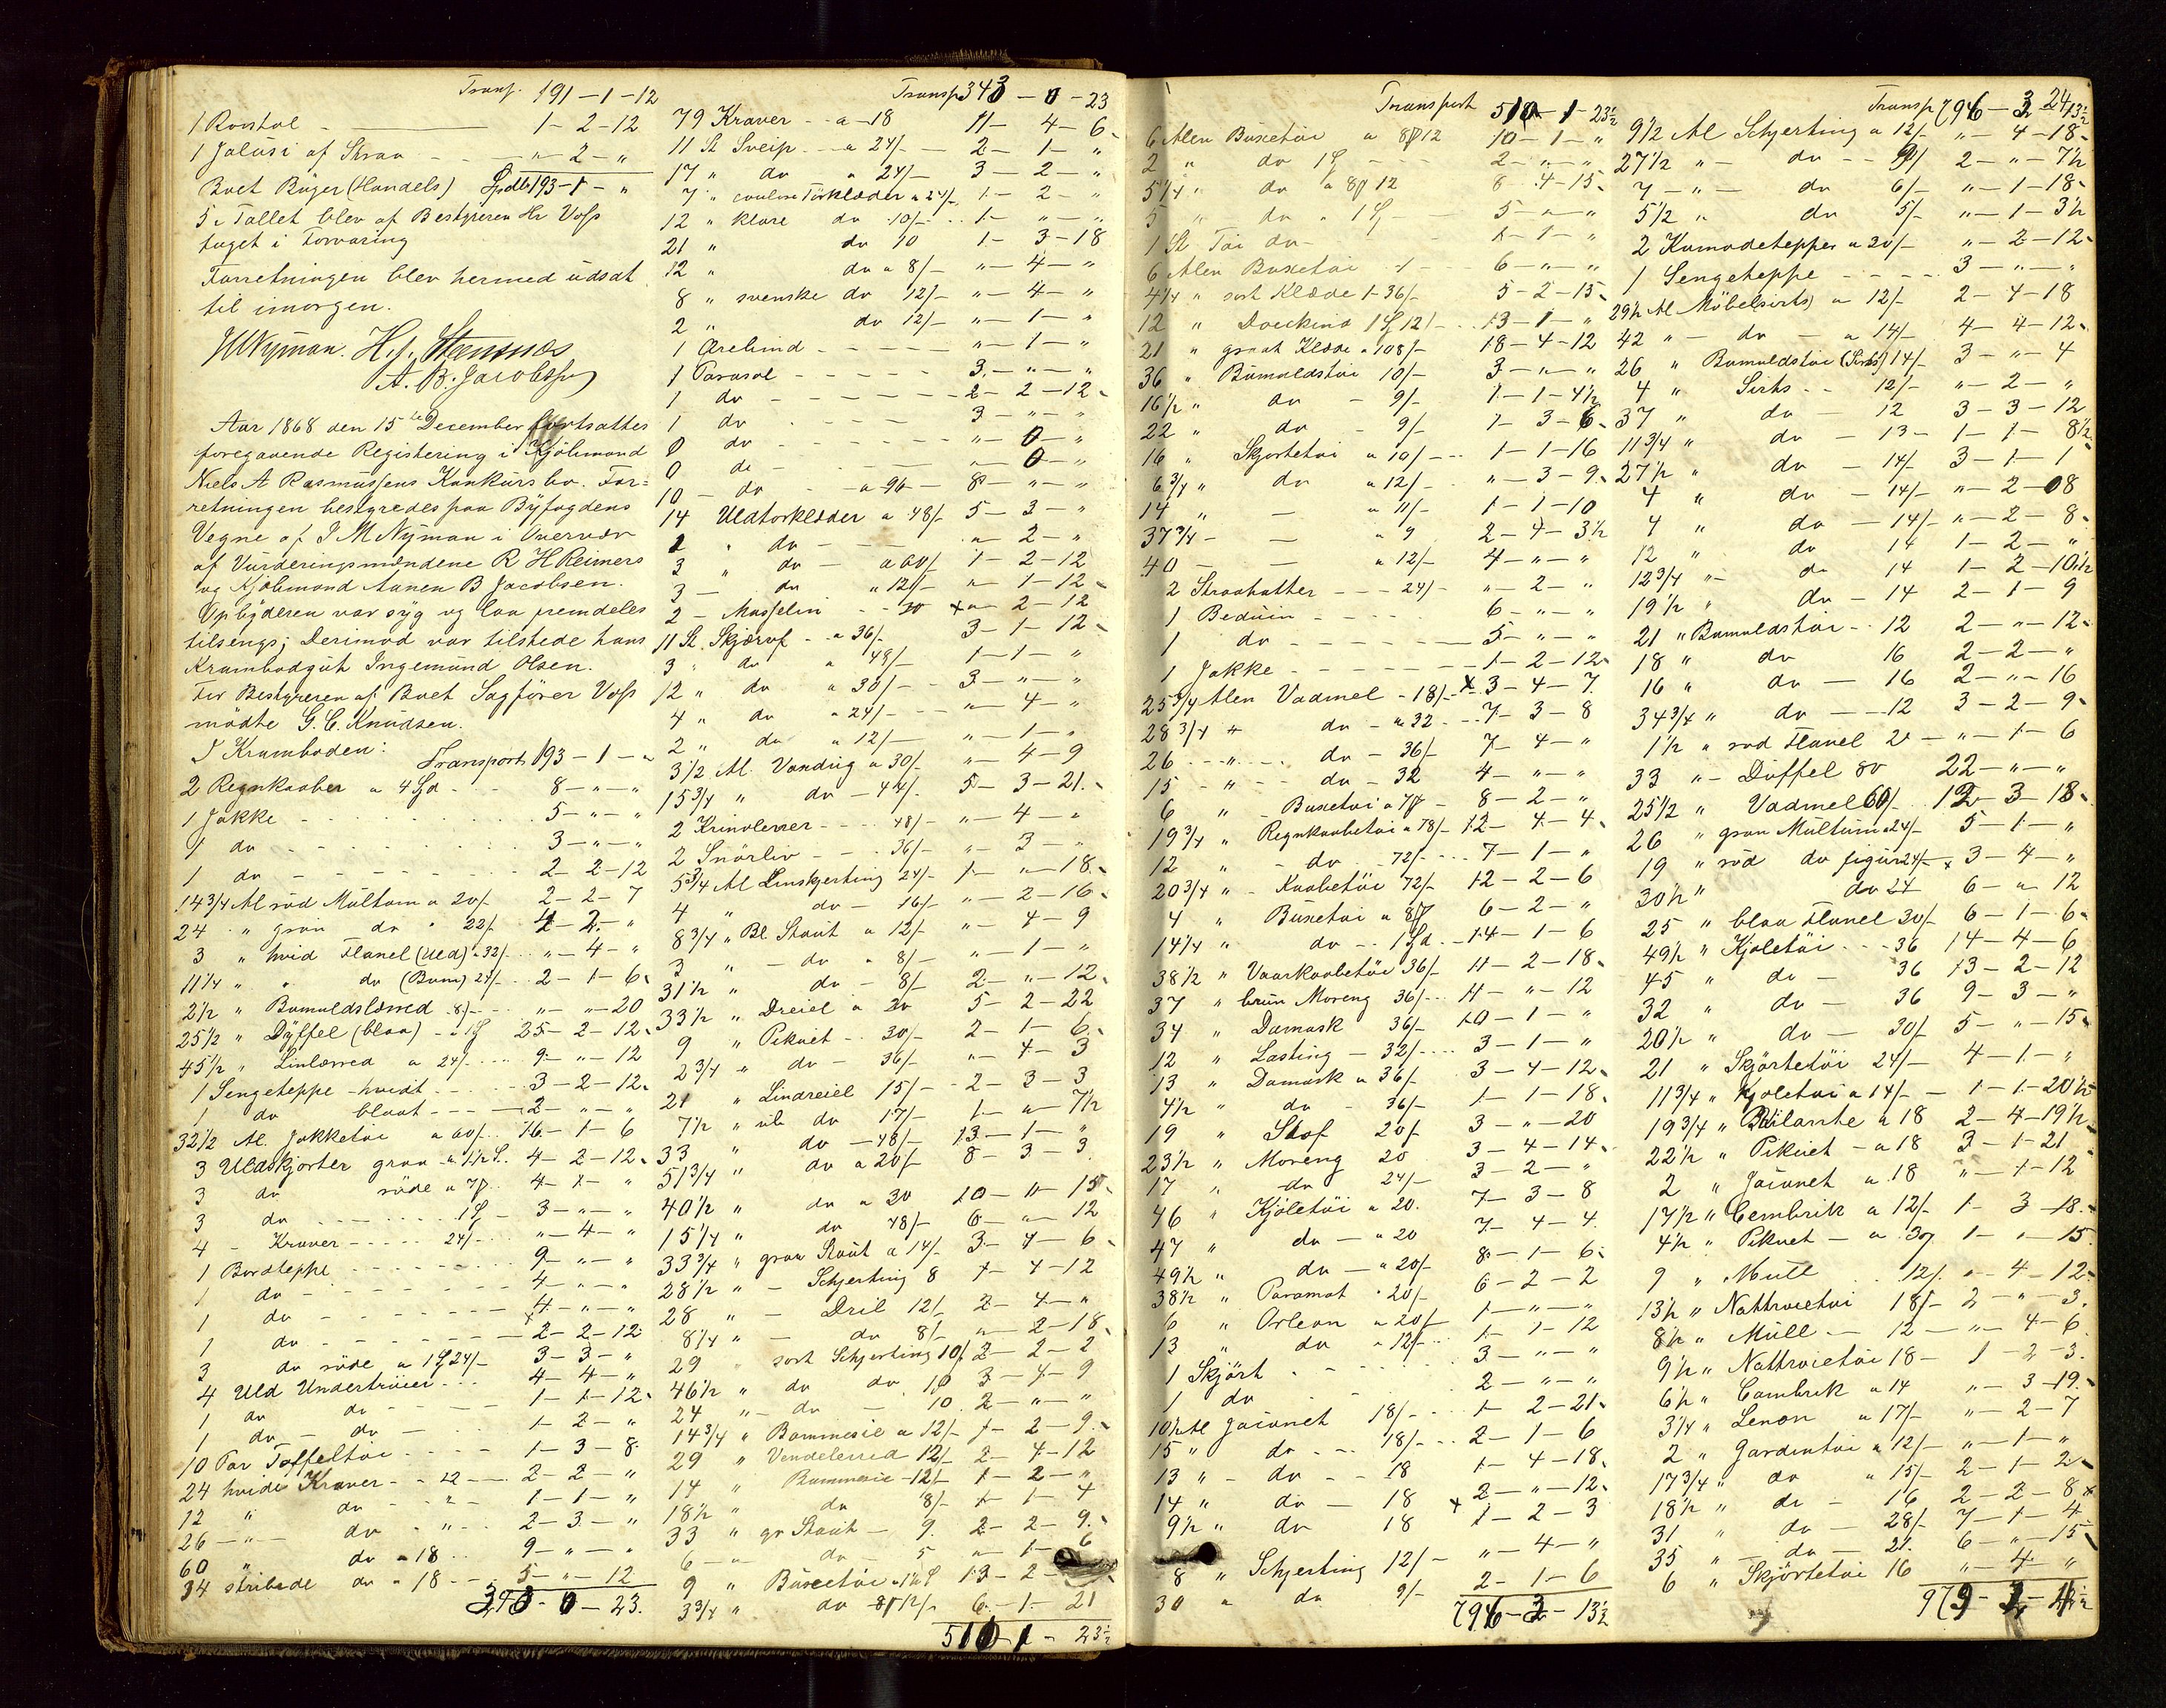 Transp. 191-1-12
1 Rorstol - 1-2-12
1 Jalusi af Straa - - „-2-„
Boet Bøger (Handels) Spdlr 193-1-„
5 i Tallet blev af Bestyreren Hr Voss
taget i Forvaring
Forretningen blev hermed udsat
til imorgen.
JMNyman. H. J. Stennæs
A. B. Jacobsen
Aar 1868 den 15de December fortsattes
foregaaende Registering i Kjøbmand
Niels A Rasmussens Konkursbo. For=
retningen bestyredes paa Byfogdens
Vegne af J M Nyman i Overvær
af Vurderingsmændene R H Reimers
og Kjøbmand Aanen B Jacobsen.
Opbyderen var syg og laa fremdeles
tilsengs; Derimod var tilstede hans
Krambodgut Ingemund Olsen.
For Bestyreren af Boet Sagfører Voss
mødte G. C. Knudsen.
I Kramboden: Transport 193-1-„
2 Regnkaaber a 4 Spd - 8-„-„
1 Jakke - 5-„-„
1 do - 3-„-„
1 do - 2-2-12
14 3/4 Al rød Multum a 20/- 2-2-7
24 „ grøn do „ 22/- 4-2-„
3 „ hvid Flanel (Uld) a 32/- „-4-„
11 1/4 „ „ do (Bom) 24/- 2-1-6
2 1/2 „ Bomuldslærred 8/- „-„-20
25 1/2 „ Dyffel (blaa) - 25-2-12
45 1/2 „ Linlærred a 24/- 9-„-12
1 Sengeteppe hvidt - 3-2-12
1 do blaat - 2-„-„
32 1/2 Al. Jakketøi a 60/- 16-1-6
3 Uldskjorter graa - 4-2-12
3 do røde - 4-1-„
3 do - 3-„-„
4 - Kraver - 24/- „-4-„
1 Bordteppe - 9-„-„
1 do - 4-„-„
1 do - 4-„-„
1 do - 2-2-12
3 do røde - 24/- 3-3-„
4 Uld Undertrøier - 4-4-„
1 do do - 1-1-12
1 do - do - 1-2-„
10 Par Toffeltøi - 1-3-8
24 hvide Kraver - 12 - 2-2-„
12 „ do - „ - 1-1-„
26 „ do - „ - 2-3-„
60 „ do a 18 - 9-„-„
34 stribede do a 18 - 5-„-12
343-0-23.
Transp 343-0-23
79 Kraver - a 18 11-4-6
11 St Sveip - a 24/- 2-1-„
17 „ do a 24/- 3-2-„
7 „ coulørte Tørklæder a 24/- 1-2-„
12 „ klare do 10/- 1-„-„
21 „ do 10 1-3-18
12 „ do a 8/- „-4-„
8 „ svenske do 12/- „-4-„
2 „ do 12/- „-1-„
1 Ørebind - „-1-„
1 Parasol - 3-„-„
1 do - 2-2-12
1 do - 3-„-„
0 do - „-0-„
0 do - „-0-„
10 - do - a 96 - 8-„-„
14 Uldtørklæder a 48/- 5-3-„
1 „ do - „-2-„
3 „ do - a 60/- 1-2-12
3 - do „ 12/- „-1-12
2 - Musselin - 30 „-2-12
11 St. Skjærf - a 36/- 3-1-12
3 „ do a 48/- 1-1-„
12 „ do a 30/- 3-„-„
4 „ do a 24/- „-4-„
2 „ do a 12/- „-1-„
3 1/2 Al. Vandug a 30/- „-4-9
15 3/4 „ do - 44/- 5-3-21
2 Krinoliner - 48/- „-4-„
2 Snørliv - 36/- „-3-„
5 3/4 Al Linskjerting 24/- 1-„-18
4 „ do - 16/- „-2-16
8 3/4 „ Bl Stout a 12/- „-4-9
3 „ - do a 8/- „-1-„
31 1/2 „ do - 8/- 2-„-12
33 1/2 „ Dreiel a 20 5-2-22
9 „ Pekuet - 30/- 2-1-6
2 3/4 „ do - 36/- „-4-3
21 „ Lindreiel 15/- 2-3-3
7 1/2 „ do 17/- 1-„-7 1/2
33 „ do - 48/- 13-1-„
51 3/4 „ do a 20/- 8-3-3
40 1/2 „ do a 30 10-„-15
15 1/4 „ do 48/- 6-„-12
33 3/4 „ graa Stout a 14/- 3-4-6
28 1/2 „ - Schjerting 8 1-4-12
28 „ - Dril 12/- 2-4-„
8 1/4 „ - do 8/- „-2-18
29 „ sort Schjerting 10/- 2-2-2
46 1/2 „ do do 10 3-4-9
24 „ - do - 10 2-„-„
14 3/4 „ Bommesie a 12/- 1-2-9
29 „ Vendelerred 12/- 2-4-12
14 „ Bommesie - 12/- 1-2-„
18 1/2 „ do 8/- 1-1-4
33 „ gr Stout - 9 2-2-9
6 „ do - 5 „-1-6
9 „ Buxetøi - 13-2-
3 3/4 „ do 6-1-21
510-1-23 1/2
Transport 510-1-23 1/2
6 Alen Buxetøi a 12 10-1-„
2 „ do - 2-„-„
5 1/4 „ do a 12 8-4-15
5 „ do a - 5-„-„
1 St Tøi do - 1-1-„
6 Alen Buxetøi - 6-„-„
4 1/4 „ sort Klæde 1-36/- 5-2-15
12 „ Doeskind 12/- 13-1-„
21 „ graat Klæde a 108/- 18-4-12
36 „ Bomuldstøi 10/- 3-„-„
16 1/2 „ do - 9/- 1-1-4 1/2
22 „ do - 9/- 1-3-6
16 „ Skjortetøi a 10/- 1-1-16
6 3/4 „ do a 12/- „-3-9
14 „ - a 11/- 1-1-10
37 3/4 - - a 9 2-4-3 1/2
40 - - a 12/- 4-„-„
2 Straahatter - 24/- „-2-„
1 Beduin - 6-„-„
1 do - 5-„-„
1 Jakke - 1-2-12
25 3/4 Alen Vadmel - 18/- 3-4-7
28 3/4 „ do - a 32 - 7-3-8
26 „ do - 36/- 7-4-„
15 - „ - do - 32 4-„-„
6 „ - Buxetøi - 8-2-„
19 3/4 „ Regnkaabetøi a 78/- 12-4-4
12 „ - do - 72/- 7-1-„
20 3/4 „ - Kaabetøi 72/- 12-2-6
4 „ Buxetøi 6-2-„
14 1/4 „ do - 14-1-6
38 1/2 „ Vaarkaabetøi 36/- 11-2-18
37 „ brun Moreng 36/- 11-„-12
34 „ Damask 36/- 10-1-„
12 „ Lasting - 32/- 3-1-„
13 „ Damask a 36/- 3-4-12
4 1/2 „ do - 36/- 1-1-18
19 „ Stof 20/- 3-„-20
23 1/2 „ Moreng 20 3-4-14
17 „ do 24/- 3-2-„
46 „ Kjøletøi a 20. 7-3-8
47 „ do - a 20 7-4-4
49 1/2 „ do - a 20/- 8-1-6
38 1/2 „ Paramat a 20/- 6-2-2
6 „ Orlean a 20/- 1-„-„
13 „ do a 12/- 1-1-12
1 Skjørt - 3-„-„
1 do - 2-„-„
10 1/2 Al Jaconet 18/- 1-2-21
15 „ do - 18/- 2-1-6
13 „ - do - 18 1-4-18
14 „ do - 18 2-„-12
9 1/2 „ do 18 1-2-3
8 „ Schjerting 12/- „-4-„
30 „ do 9/- 2-1-6
796-3-13 1/2
Transp 796-3-13 1/2
9 1/2 Al Schjerting a 12/- „-4-18
27 1/2 „ - do - 9/- 2-„-7 1/2
7 - „ - do 6/- „-1-18
5 1/2 „ do 5/- „-1-3 1/2
2 Komodetepper a 30/- „-2-12
1 Sengeteppe - 3-„-„
29 1/2 Al Møbelsirts a 12/- 2-4-18
42 „ - do - a 14/- 4-4-12
26 „ Bomuldstøi (Sirts) 14/- 3-„-4
4 „ Sirts - 12/- „-2-„
37 „ do - 12 3-3-12
11 3/4 „ do - 13 - 1-1-8 1/2
27 1/2 „ do - 14/- 3-1-1
4 „ do - 14/- „-2-8
4 „ do - 14/- „-2-8
12 „ do 14 1-2-„
12 3/4 „ - do 14 1-2-10 1/2
19 1/2 „ do - 14 2-1-9
21 „ Bomuldstøi - 12 2-„-12
18 „ do 16 2-2-„
16 „ do - 16 2-„-16
34 3/4 „ do - 12 3-2-9
1 1/2 „ rød Flanel 20 - „-1-6
33 „ - Døffel 80 22-„-„
25 1/2 „ Vadmel 60/- 12-3-18
26 „ grøn Multum a 24/- 5-1-„
19 „ rød do figur 24/- 3-4-„
30 1/2 „ do 24 6-„-12
25 „ blaa Flanel 30/- 6-1-6
49 1/2 „ Kjoletøi - 36 14-4-6
45 „ do - 36 13-2-12
32 „ do - 36 9-3-„
20 1/2 „ do - 30/- 5-„-15
21 „ Skjørtetøi 24/- 4-1-„
11 3/4 „ Kjoletøi a 14/- 1-1-20 1/2
19 3/4 „ a 18 2-4-19 1/2
22 1/2 „ Pikuet - a 18 3-1-21
2 „ Jaconet a 18 „-1-12
17 1/2 „ Cembrik a 12/- 1-3-18
4 1/2 „ Pekuet - a 30 1-„-15
9 „ Mull 12/- „-4-12
13 1/2 „ Nattrøietøi 18/- 2-„-3
8 1/2 „ Mull - 12 - „-4-6
9 1/2 „ Nattrøietøi 18 - 1-2-3
6 1/2 „ Cambrik a 14 „-3-19
3 1/4 „ Lenon a 17/- „-2-7
2 „ Gardintøi a 12/- „-1-„
17 3/4 „ do a 15/- 2-1-2
18 1/2 „ do - 16 2-2-8
31 „ do - 28/- 7-1-4
35 „ - do - 21. 6-„-15
6 „ Skjørtetøi 16 „-4-„